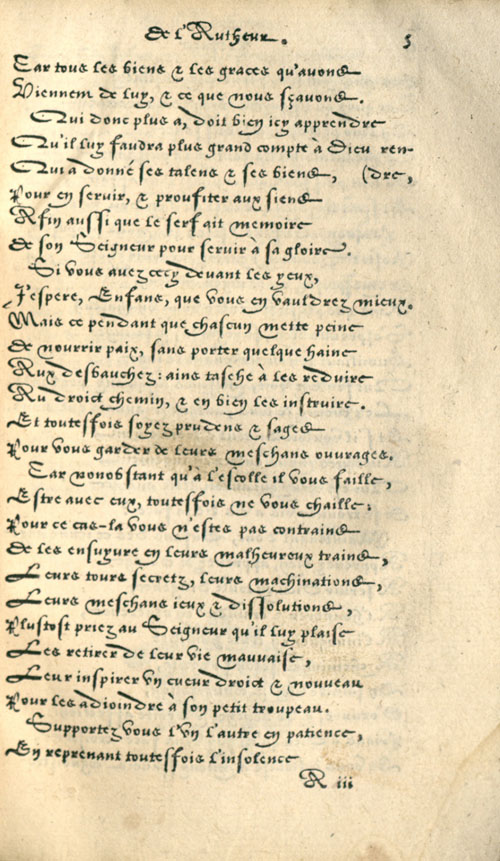 De l'Autheur. 5
Car tous les biens & les graces qu'avons
Viennent de luy, & ce que nous sçavons.
Qui donc plus a, doit bien icy apprendre
Qu'il luy faudra plus grand compte à Dieu ren-
Qui a donné ses talens & ses biens, (dre,
Pour en servir, & proufiter aux siens
Afin aussi que le serf ait memoire
De son Seigneur pour servir à sa gloire.
Si vous avez cecy devant les yeux,
J'espere, Enfans, que vous en vauldrez mieux.
Mais ce pendant que chascun mette peine
De nourrir paix, sans porter quelque haine
Aux desbauchez: ains tasche à les reduire
Au droict chemin, & en bien les instruire.
Et toutesfois soyez prudens & sages
Pour vous garder de leurs meschans ouvrages.
Car nonobstant qu'à l'escolle il vous faille,
Estre avec eux, toutesfois ne vous chaille:
Pour ce cas-la vous n'estes pas contrains
De les ensuyure en leurs malheureux trains,
Leurs tours secretz, leurs machinations,
Leurs meschans ieux & dissolutions,
Plustost priez au Seigneur qu'il luy plaise
Les retirer de leur vie mauvaise,
Leur inspirer vn cueur droict & nouveau
Pour les adioindre à son petit troupeau.
Supportez vous l'vn l'autre en patience,
En reprenant toutesfois l'insolence
A iii